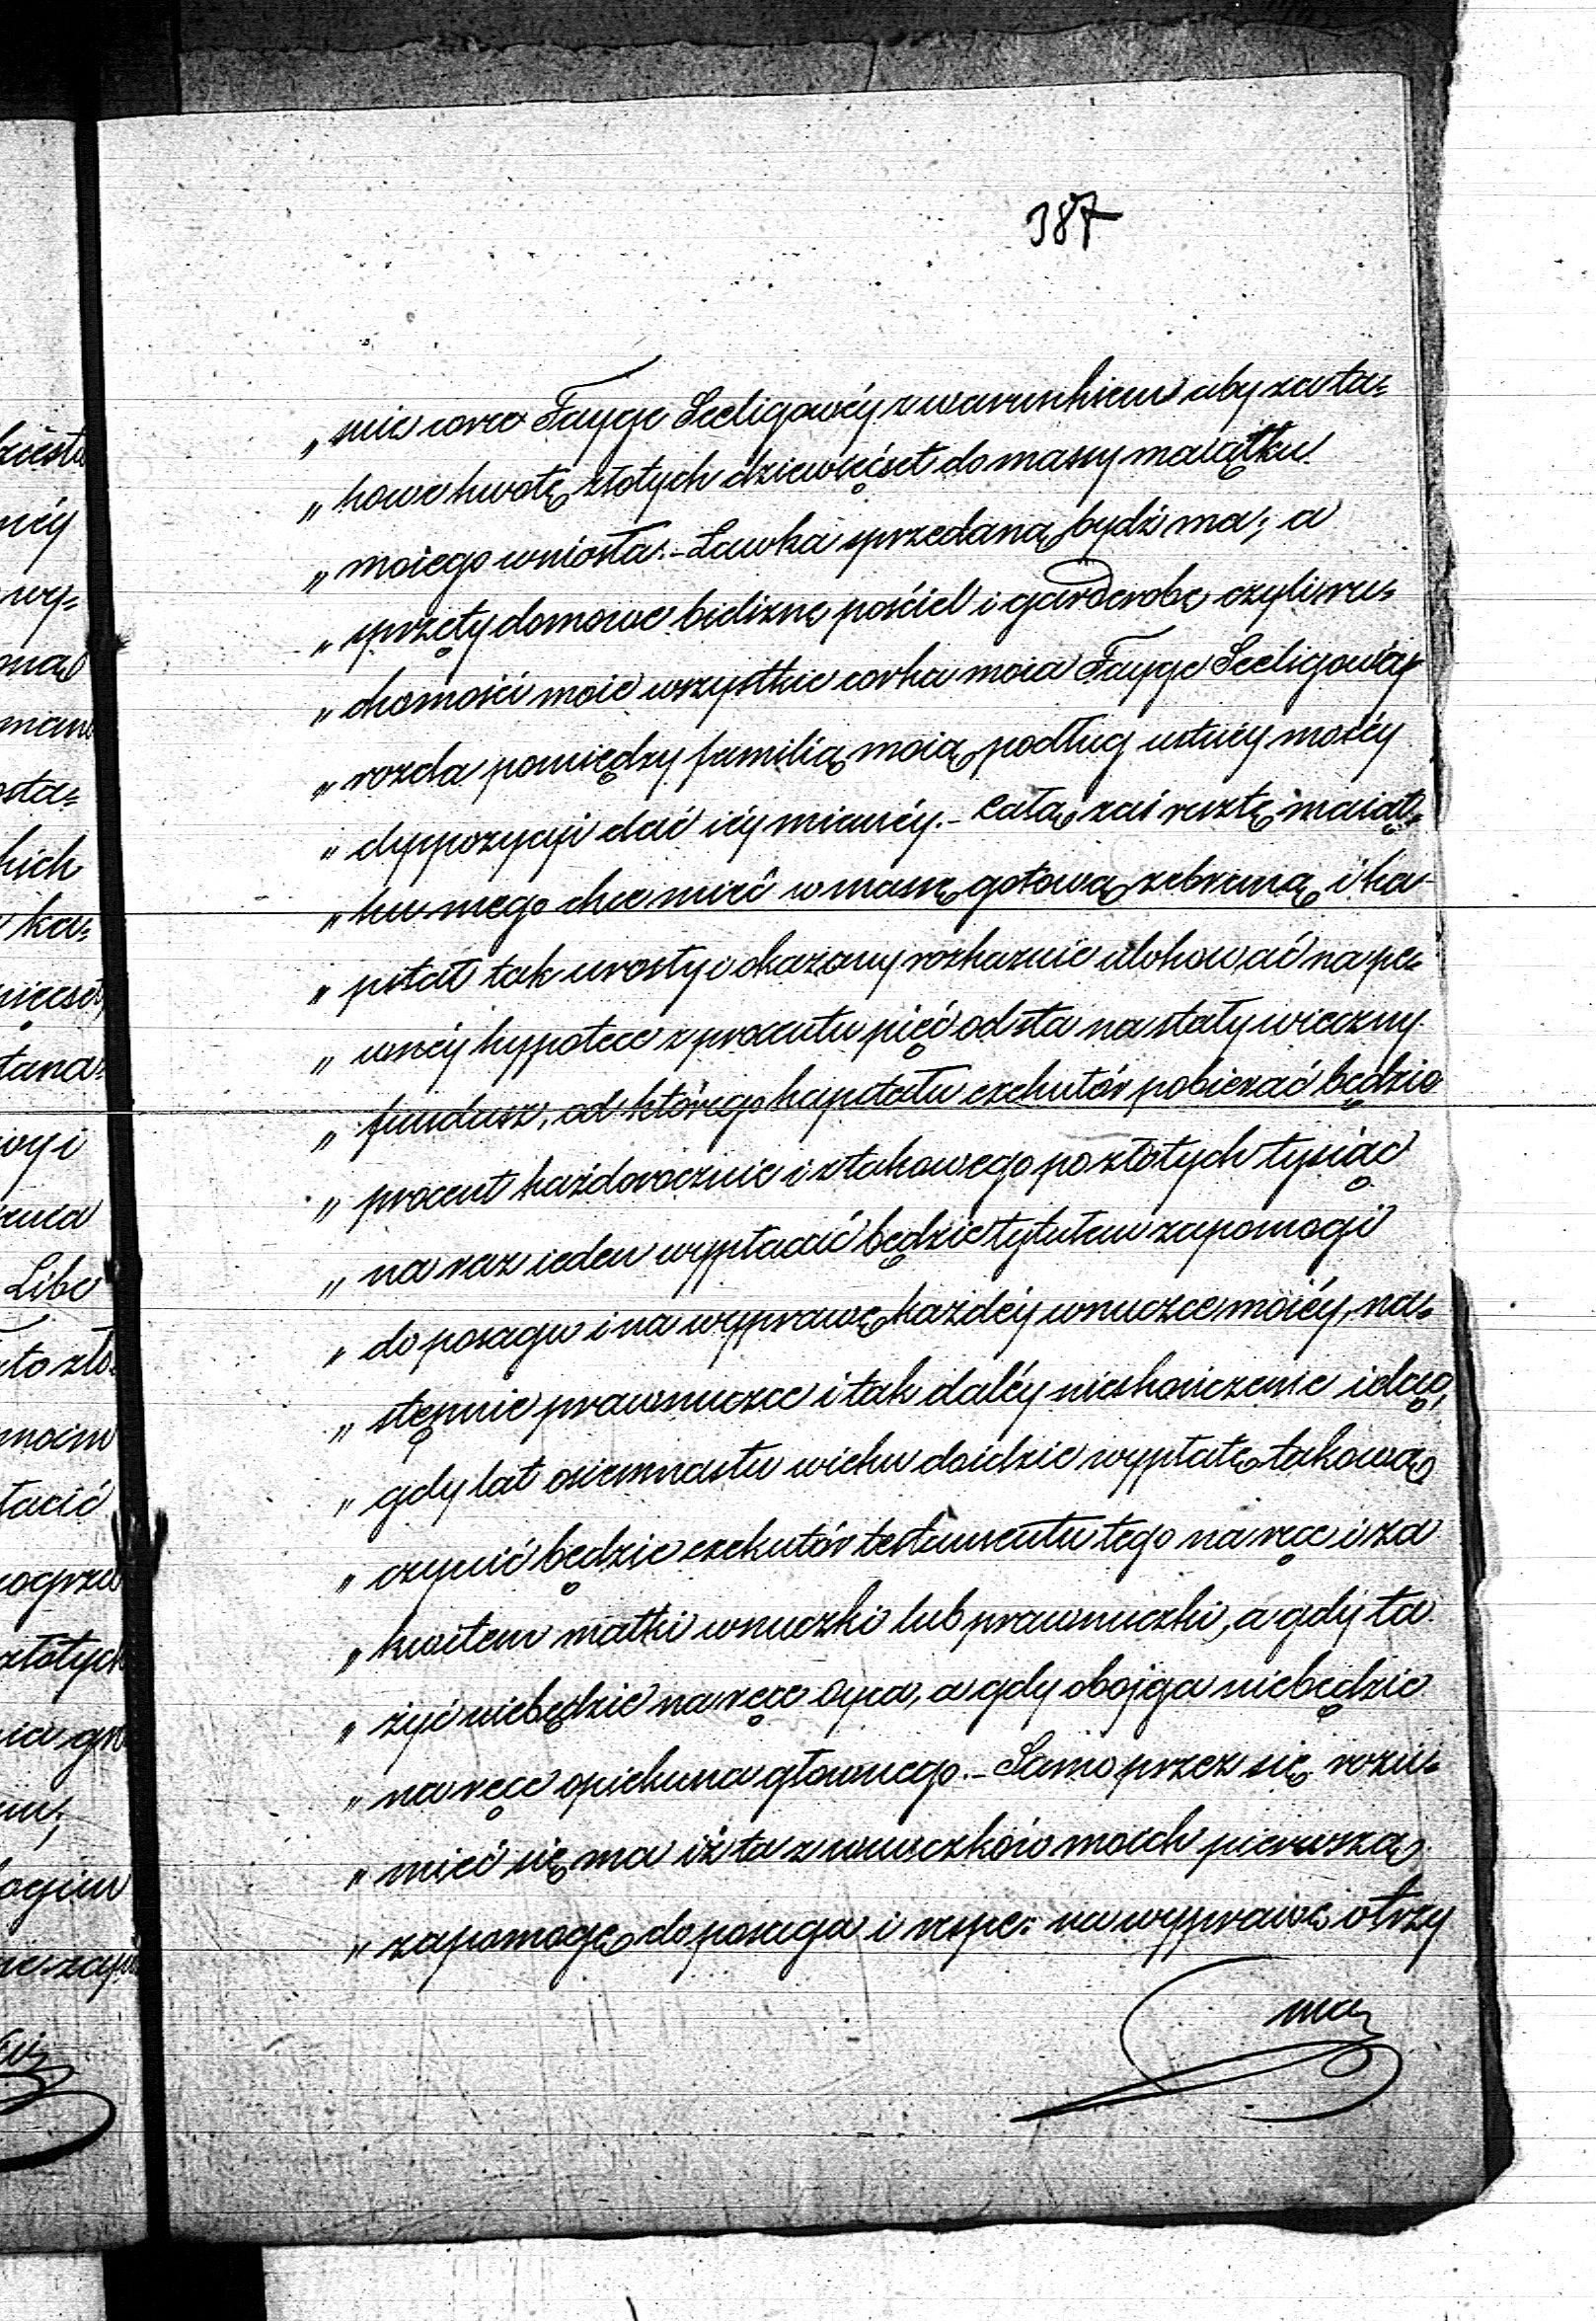 387
„ mie corce Fayge Seeligowéy z warunkiem aby za ta=
„ kowe kwotę złotych dziewięćset do massy maiątku
„ moiego wniosła.– Ławka sprzedaną bydź ma; a
„ sprzęty domowe bieliznę pościel i garderobę czyli ru=
„ chomości moie wszystkie corka moia Fayge Seeligowa
„ rozda pomiędzy familią moią podług ustnéy moiéy
„ dyspozycyi dać iéy mianéy.– Całą zaś resztę maiąt=
„ ku mego chce mieć w massę gotową zebraną i ka=
„ pitał tak urosły i okazany rozkazuie ulokować na pe=
„ wnéy hypotece z procentu pięć od sta na stały wieczny
„ fundusz, od którego kapitału exekutór pobierać będzie
„ procent każdorocznie i z takowego po złotych tysiąc
„ na raz ieden wypłacać będzie tytułem zapomogi
„ do posagu i na wyprawę każdéy wnuczce moiéy, na=
„ stępnie prawnuczce i tak daléy nieskończenie idąc,
„ gdy lat ośiemnastu wieku doidzie wypłatę takową
„ czynić będzie exekutór testamentu tego na ręce i za
„ kwitem matki wnuczki lub prawnuczki, a gdy ta
„ żyć niebędzie na ręce oyca, a gdy obojga niebędzie
„ na ręce opiekuna głownego.– Samo przez się rozu=
„ mieć się ma iż ta z wnuczków moich pierwszą
„ zapomogę do posaga i respe: na wyprawę otrzy
ma